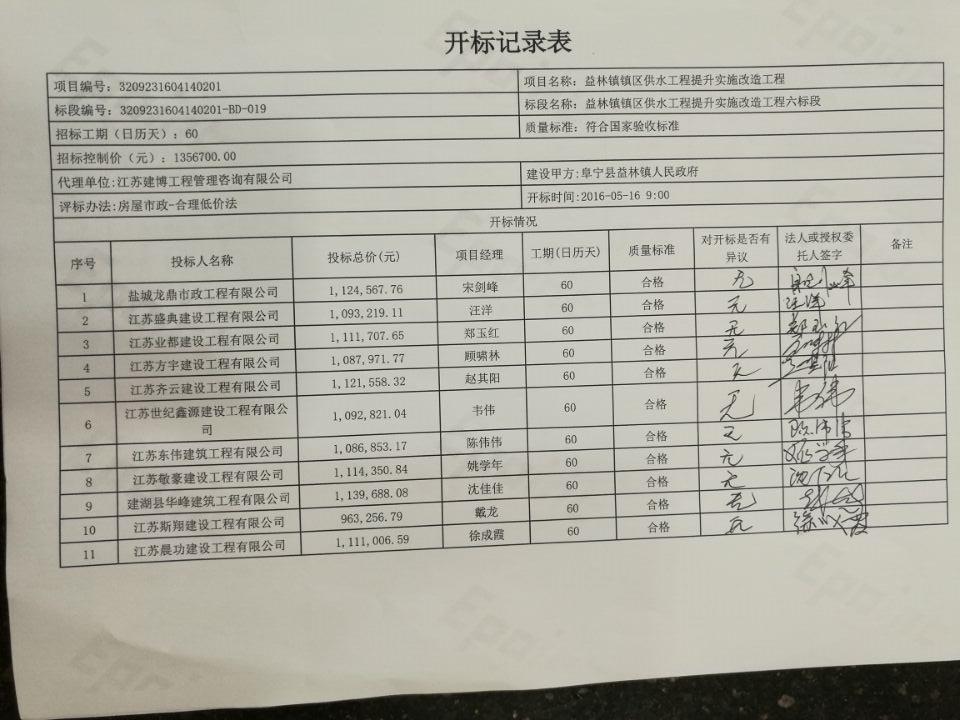 开标记录表
项目编号：3209231604140201 项目名称：益林镇镇区供水工程提升实施改造工程
标段编号：3209231604140201-BD-019 标段名称：益林镇镇区供水工程提升实施改造工程六标段
招标工期（日历天）：60 质量标准：符合国家验收标准
招标控制价（元）：1356700.00
代理单位:江苏建博工程管理咨询有限公司 建设甲方:阜宁县益林镇人民政府
评标办法:房屋市政-合理低价法 开标时间:2016-05-16 9:00
开标情况
序号 投标人名称 投标总价(元) 项目经理 工期(日历天) 质量标准 对开标是否有异议 法人或授权委托人签字 备注
1 盐城龙鼎市政工程有限公司 1,124,567.76 宋剑峰 60 合格 无
2 江苏盛典建设工程有限公司 1,093,219.11 汪洋 60 合格 无 汪洋
3 江苏业都建设工程有限公司 1,111,707.65 郑玉红 60 合格 无 郑玉红
4 江苏方宇建设工程有限公司 1,087,971.77 顾啸林 60 合格 无
5 江苏齐云建设工程有限公司 1,121,558.32 赵其阳 60 合格 无
6 江苏世纪鑫源建设工程有限公司 1,092,821.04 韦伟 60 合格 无 韦伟
7 江苏东伟建筑工程有限公司 1,086,853.17 陈伟伟 60 合格 无 陈伟伟
8 江苏敬豪建设工程有限公司 1,114,350.84 姚学年 60 合格 无 姚学年
9 建湖县华峰建筑工程有限公司 1,139,688.08 沈佳佳 60 合格 无
10 江苏斯翔建设工程有限公司 963,256.79 戴龙 60 合格 无
11 江苏晨功建设工程有限公司 1,111,006.59 徐成霞 60 合格 无
Epoint